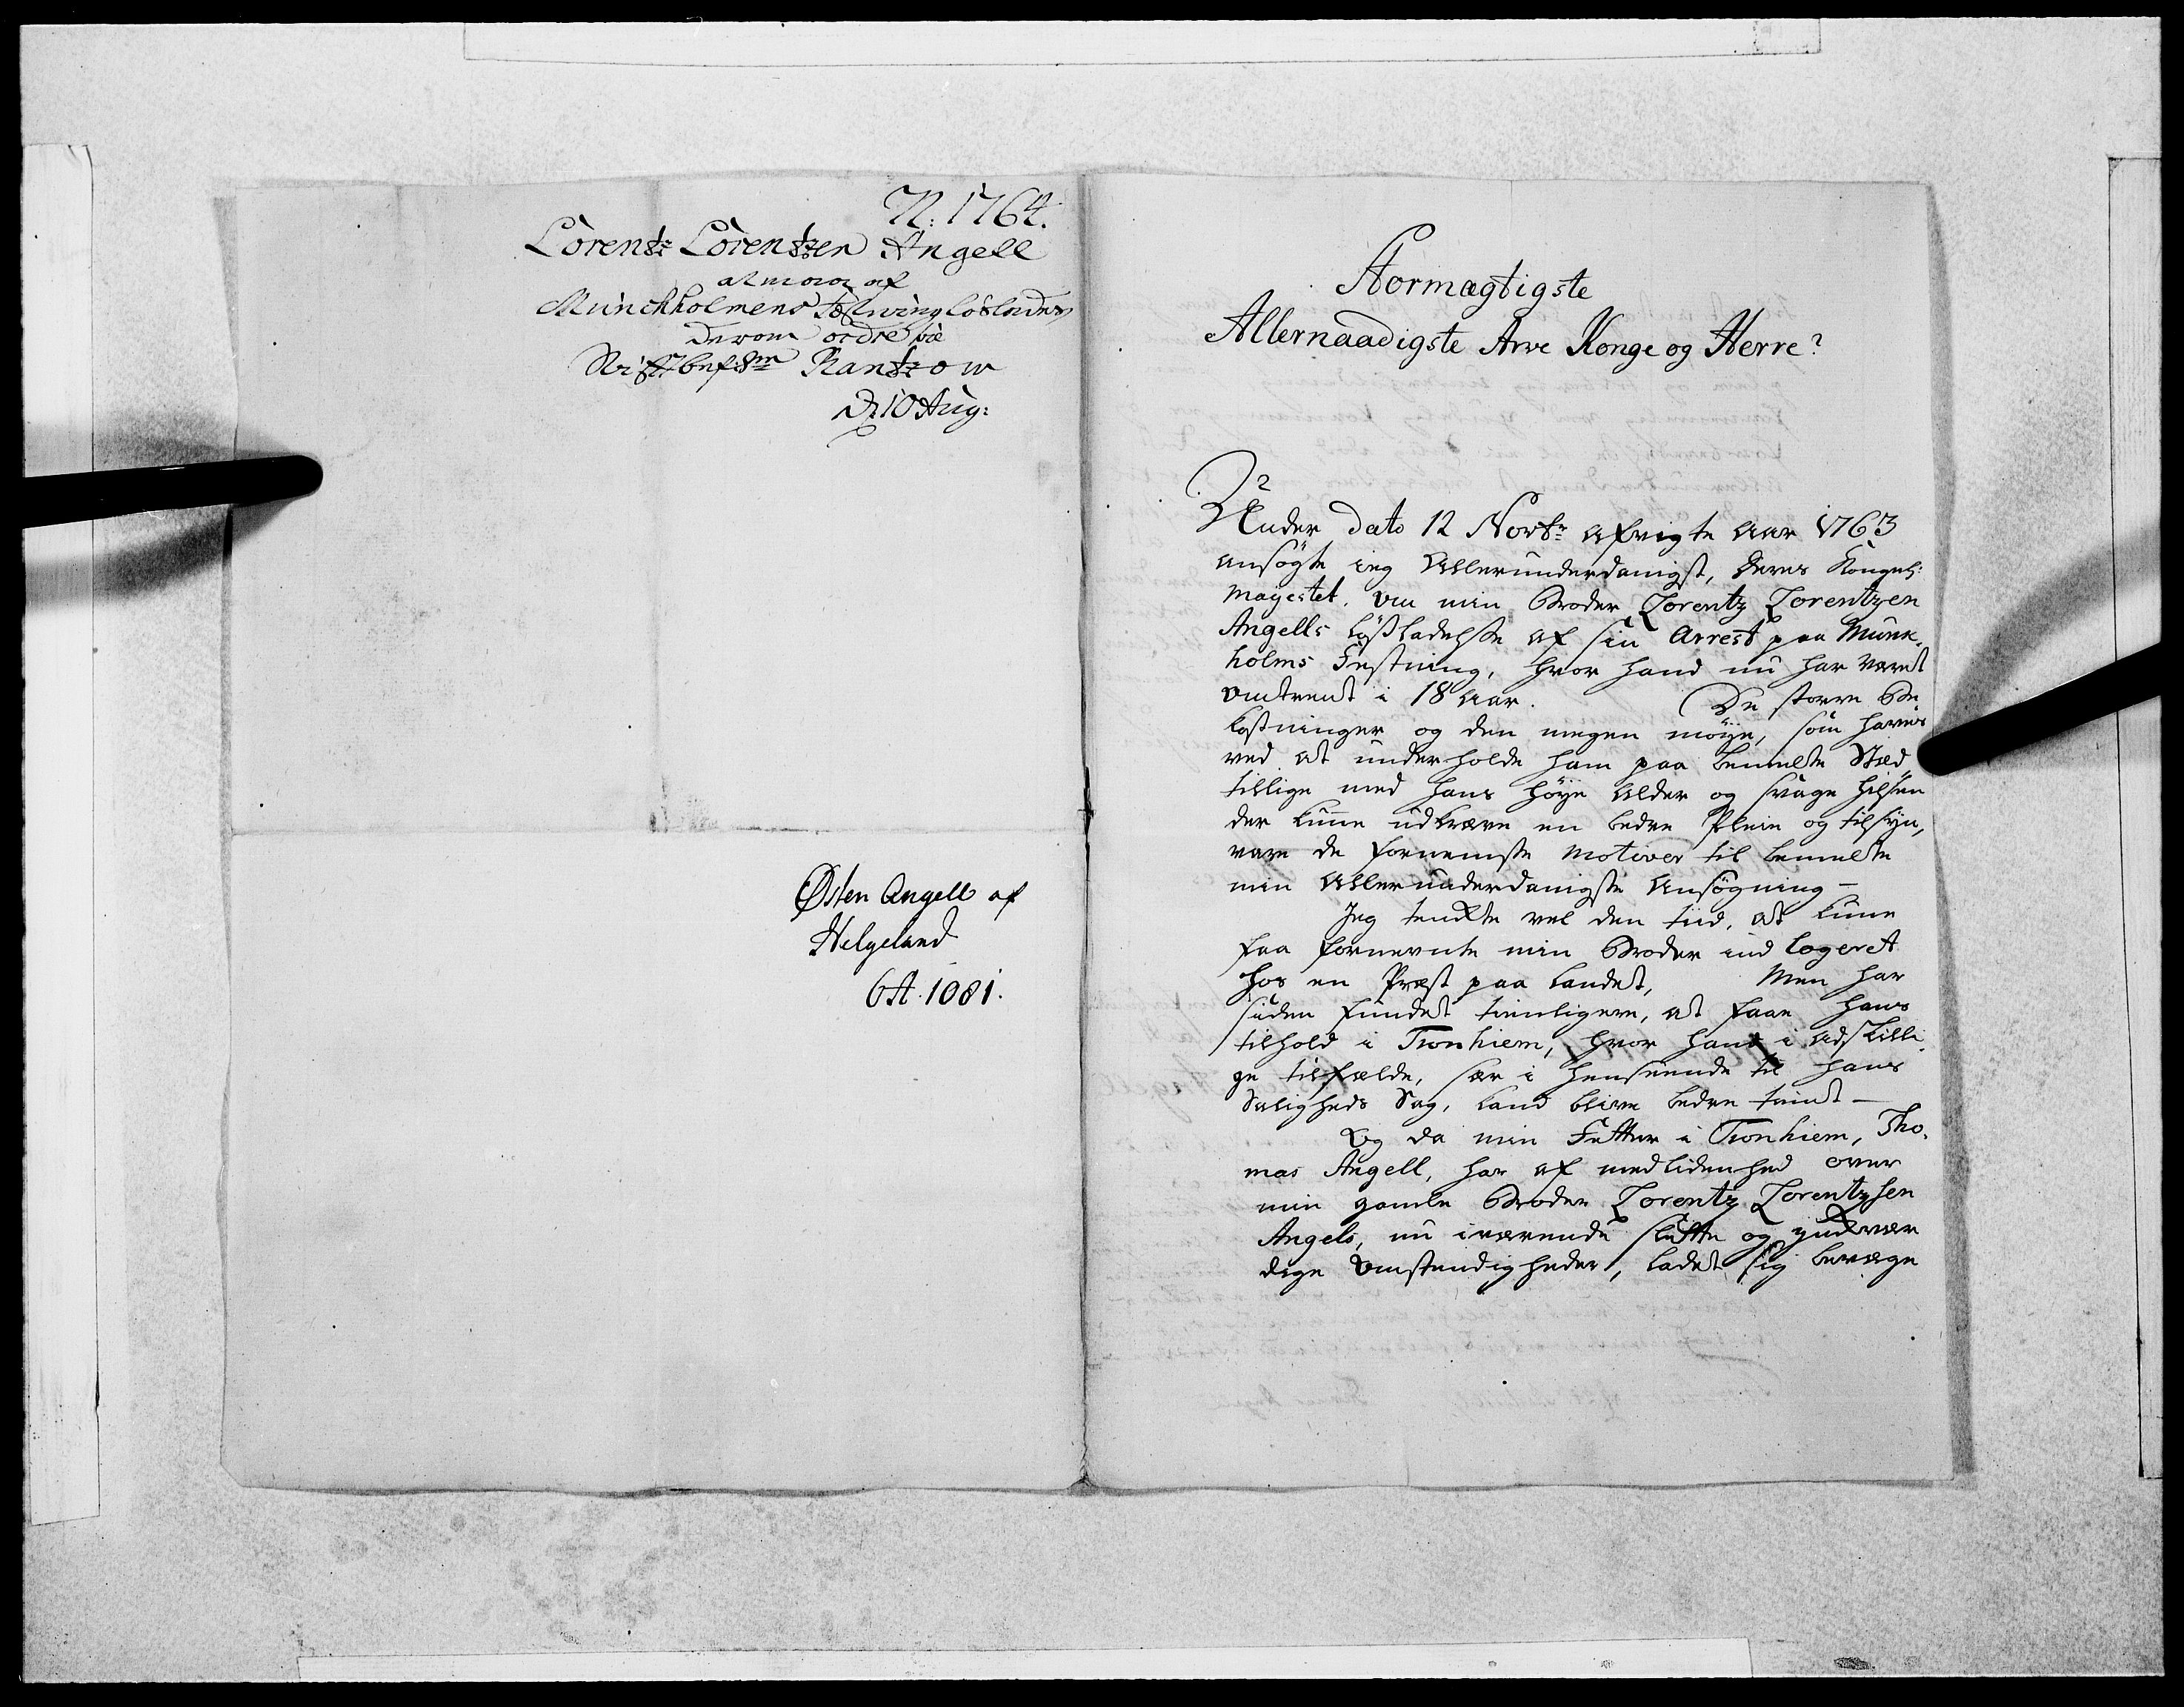 N: 1764.
Lorentz Lorentzen Angell
at være af
Munckholmens Fæstning løsladen
derom ordre til
Stiftbef:m Rantzow
D: 10 Aug:
Østen Angell af
Helgeland
6 A. 1081.
Stormægtigste
Allernaadigste Arve Konge og Herre?
Under Dato 12 Novbr afvigte Aar 1763
ansøgte ieg Allerunderdanigst, Deres Kongel:
Mayestet. om min Broder Lorentz Lorentzen
Angells løßladelsse af sin Arrest paa Munk-
holms Festning, hvor hand nu har været
omtrendt i 18 Aar. De storre Be
kostninger og den megen møye, som haves
ved at underholde ham paa bemelte Stæd
tillige med hans høye Alder og svage Helsen
der kunne udkræve en bedre Pleie og tilsyn,
vare de fornemste Motiver til bemelte
min Allerunderdanigste Ansøgning –
Jeg tenkte vel den tiid, at kunne
faa fornevnte min Broder ind logeret
hos en Præst paa Landet, Men har
siden fundet tienligere, at faae hans
tilhold i Tronhiem, hvor hand i adskilli-
ge tilfælde, sær i henseende til hans
Saligheds Sag, kand blive bedre tiendt –
Og da min Fetter i Tronhiem, Tho-
mas Angell, har af medlidenhed over
min gamle Broder Lorentz Lorentzsen
Angels, nu iværende slette og ynkvær
dige Omstendigheder, ladet sig bevæge